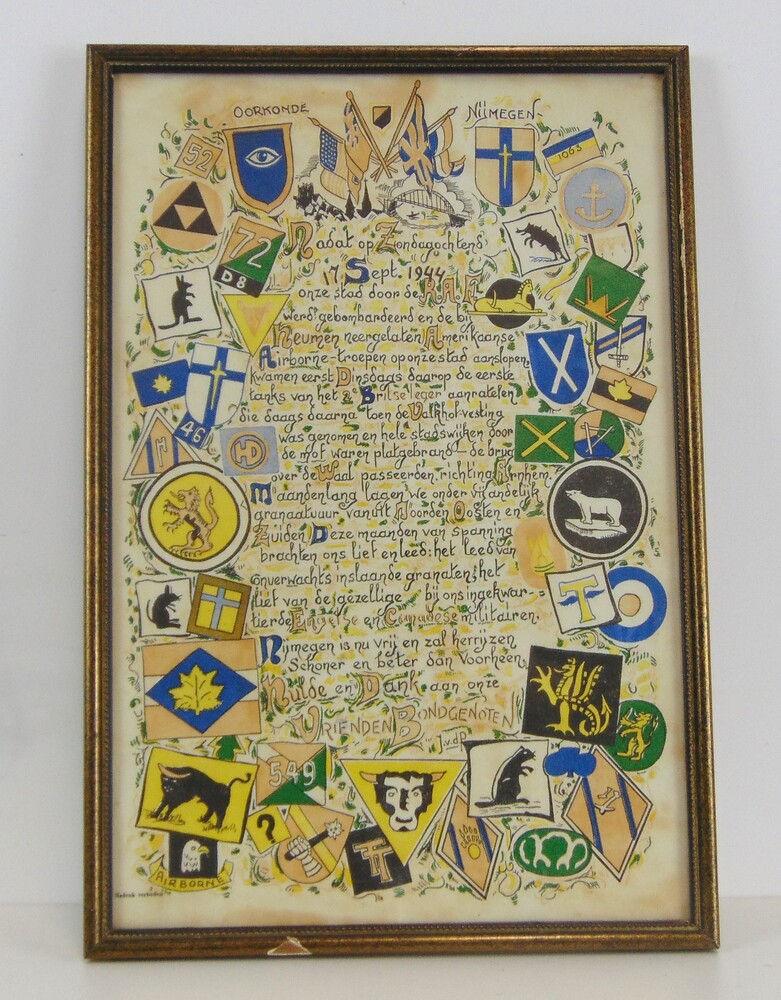 OORKONDE
NIJMEGEN
52
1063
72
D8
Nadat op Zondagochtend
17 Sept. 1944
onze stad door de R.A.F.
werd gebombardeerd en de bij
Heumen neergelaten Amerikaanse
Airborne-troepen op onze stad aanslopen,
kwamen eerst Dinsdags daarop de eerste
tanks van het 2e Britse leger aanratelen
die daags daarna toen de Valkhof-vesting
was genomen en hele stadswijken door
de mof waren platgebrand - de brug
over de Waal passeerden, richting Arnhem.
Maandenlang lagen we onder vijandelijk
granaatvuur vanuit Noorden Oosten en
Zuiden. Deze maanden van spanning
brachten ons lief en leed: het leed van
onverwachts inslaande granaten, het
lief van de gezellige bij ons ingekwar-
tierde Engelse en Canadese militairen.
Nijmegen is nu vrij en zal herrijzen
Schoner en beter dan voorheen.
Hulde en Dank aan onze
VRIENDEN BONDGENOTEN
J.v.dP.
46
H
HD
T
549
?
TT
AIRBORNE
Nadruk verboden